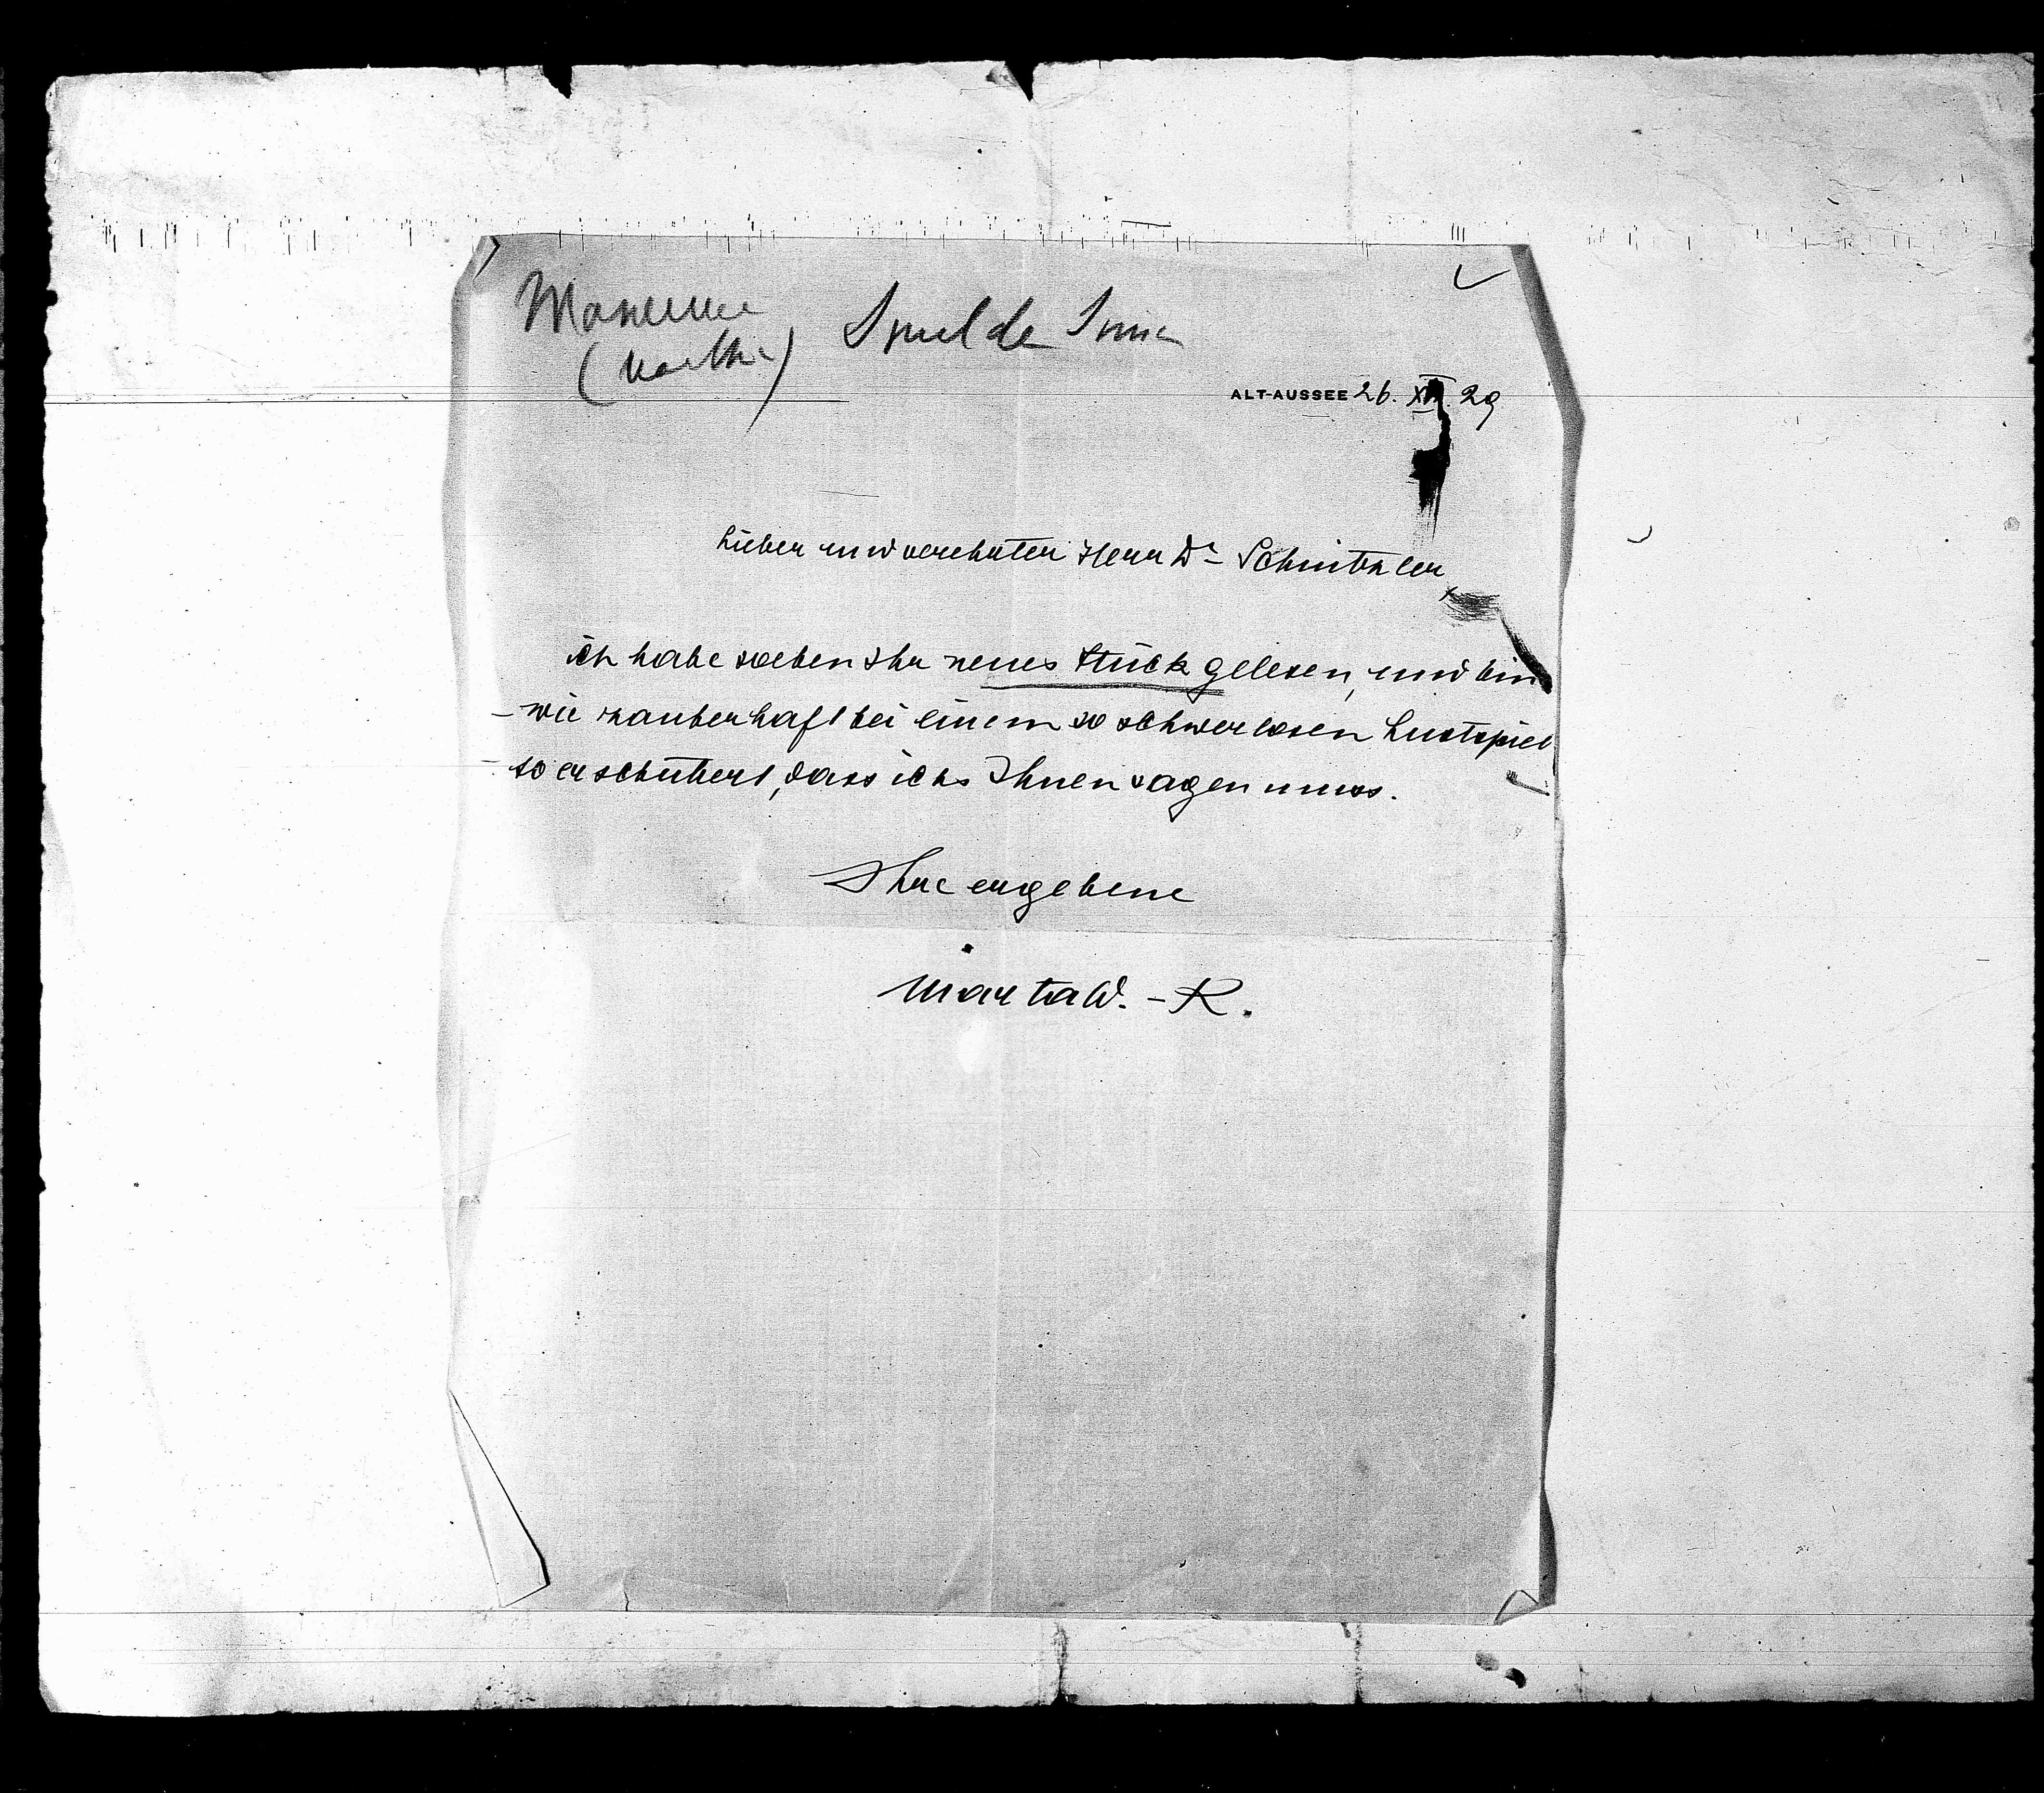 ALT-AUSSEE 26. XII. 29
Lieber und verehrter Herr Dr Schnitzler
ich habe soeben Ihr neues Stück gelesen, und bin
– wie zauberhaft bei einem so schwerlosen Lustspiel
so erschüttert, dass ichs Ihnen sagen muss.
Ihre ergebene
Marta W. – K.